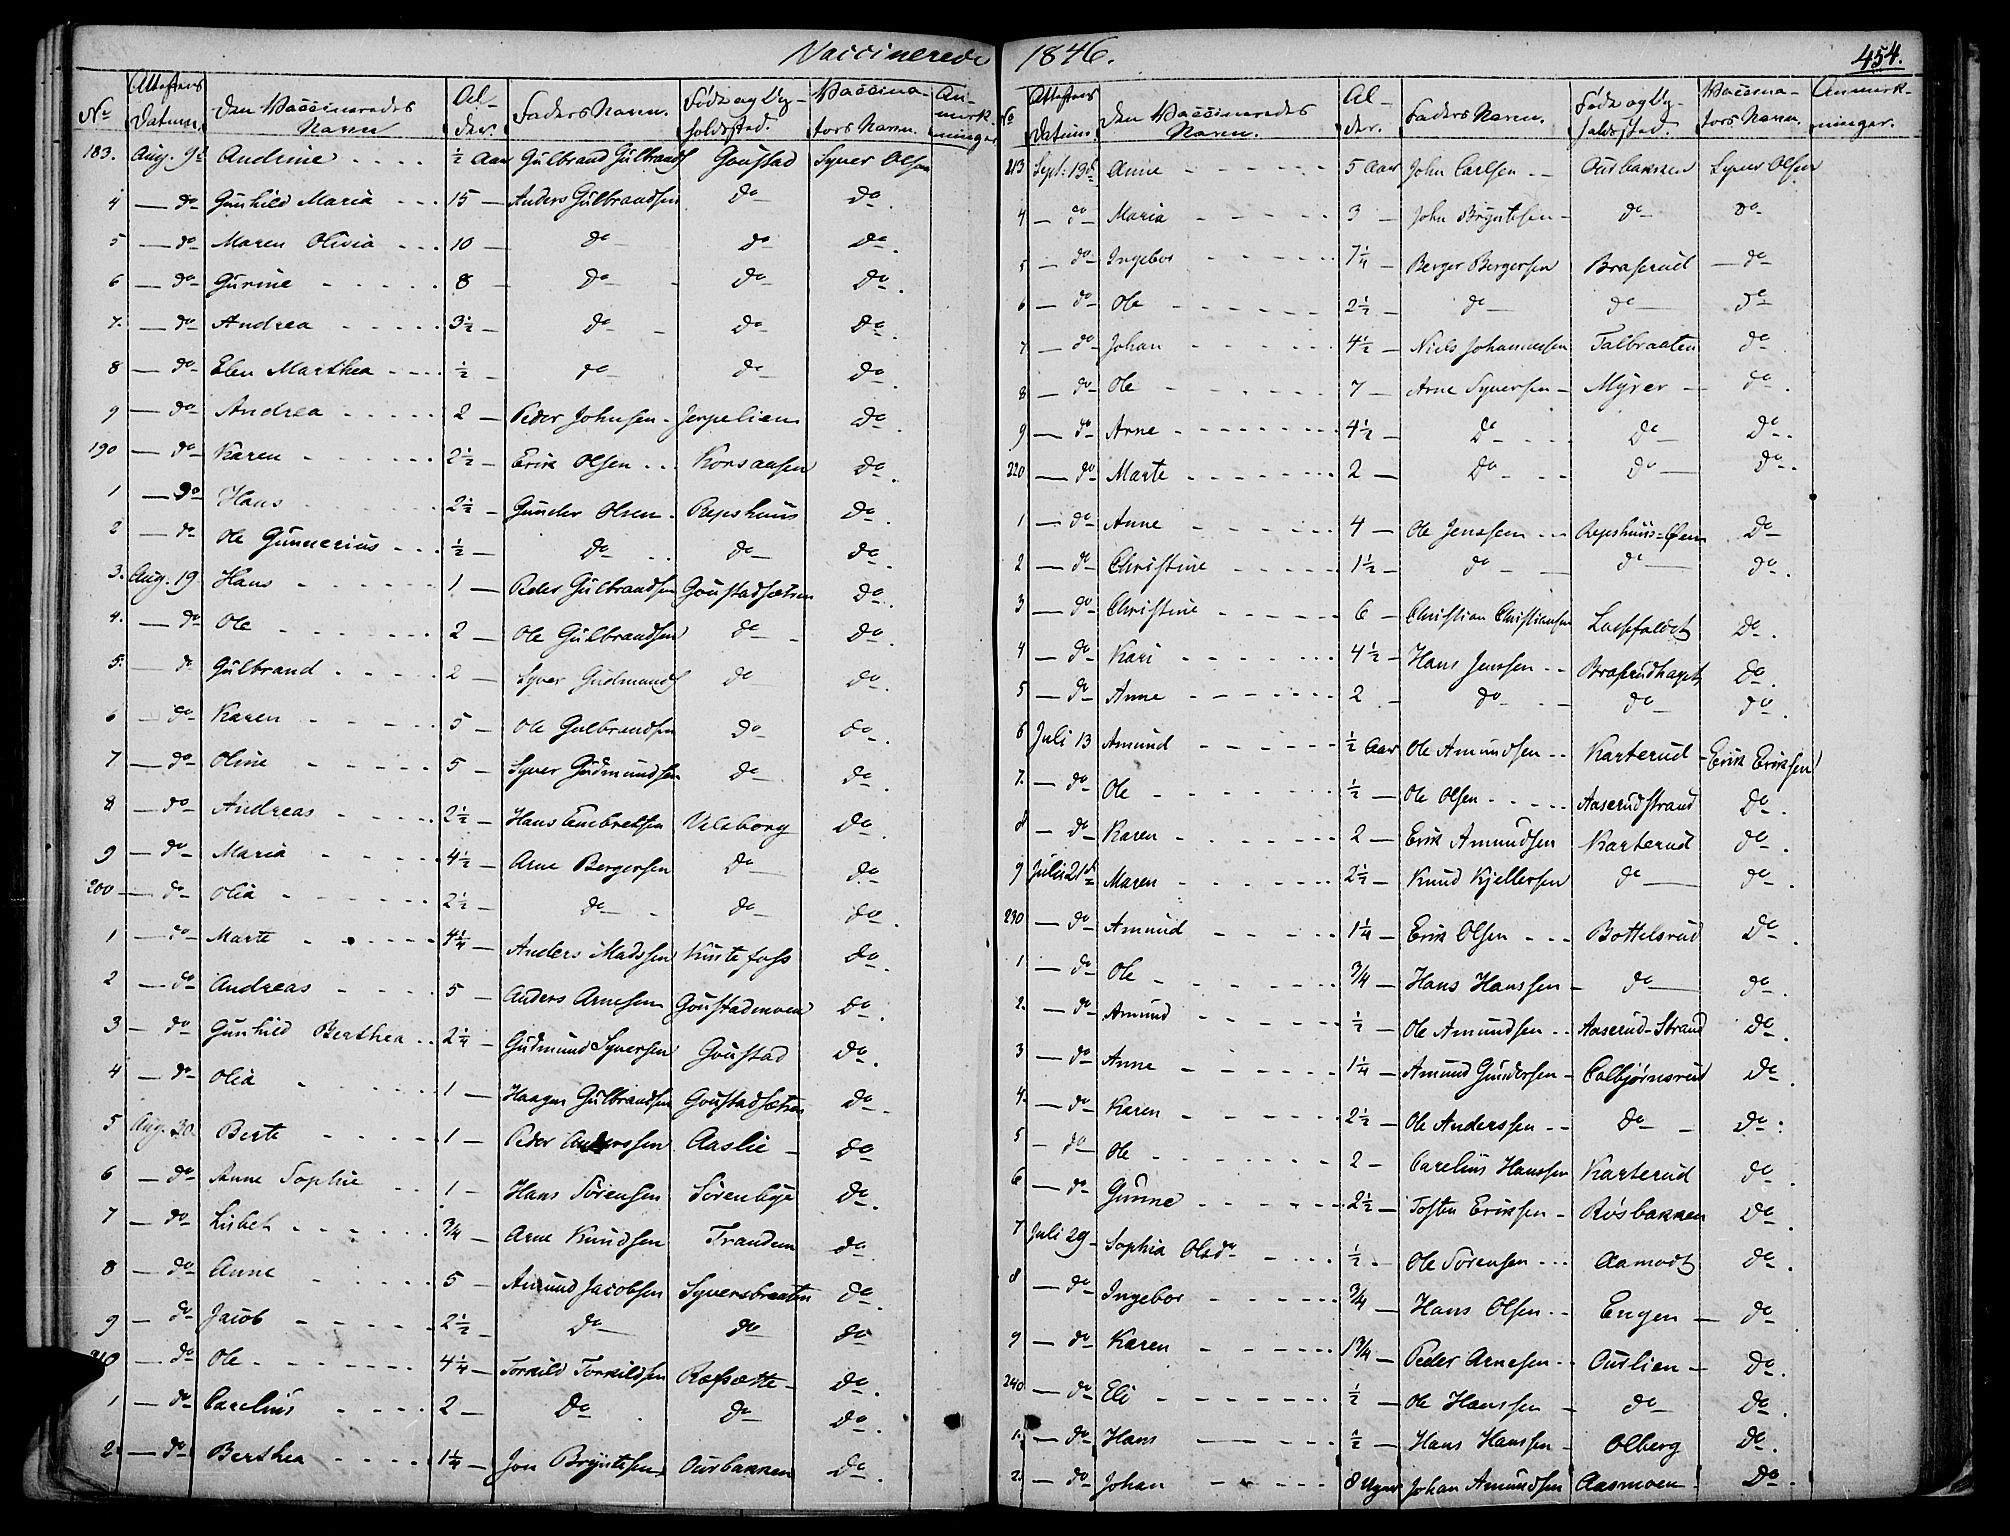 Vaccinerede
No | Attestens Datum. | Den Vaccineredes Navn | Al- der. | Faders Navn. | Føde og Op- holdssted. | Vaccina- tors Navn. | An- mærk- ninger
183. | Aug. 9d | Andrine | ½ Aar | Gulbrand Gulbrands | Goustad | Syver Olsen
4 | — do | Gunhild Maria | 15 — | Anders Gulbrandsen | do | do.
5 | — do | Maren Olivia | 10 — | do | do | do.
6 | — do | Gurine | 8 - | do | do | do.
7. | — do | Andrea | 3½ — | do | do | do.
8 | — do | Elen Marthea | ½ — | do | do | do.
9 | — do | Andrea | 2 — | Peder Johnsen | Jerpelien | do
190 | — do | Karen | 2½ — | Erik Olsen | Korsaasen | do.
1 | — do | Hans | 2½ — | Gunder Olsen | Repshuus | do.
2 | — do | Ole Gunnerius | ½ — | do | do | do.
3. | Aug. 19 | Hans | 1 — | Peder Gulbrandsen | Goustadsætren | do.
4. | — do | Ole | 2 — | Ole Gulbrandsen | do | do.
5. | — do | Gulbrand | 2 — | Syver Gudmunds | do | do.
6 | — do | Karen | 5 - | Ole Gulbrandsen | do | do.
7 | — do | Oline | 5 - | Syver Gudmundsen | do | do
8 | — do | Andreas | 2½ — | Hans Embretsen | Vilsborg | do.
9 | — do | Maria | 4½ — | Arne Bergersen | do | do
200 | — do | Olia | 2½ — | do | do | do.
1 | — do | Marte | 4¼ — | Anders Madssen | | do.
2 | — do | Andreas | 5 — | Anders Arnesen | Goustadmoen | do.
3 | — do | Gunhild Berthea | 2¼ — | Gudmund Syversen | Goustad | do.
4 | — do | Olia | 1 — | Haagen Gulbrandsen | Goustadsætren | do.
5 | Aug. 30. | Berte | 1 — | Peder Anderssen | Aaslie | do
6 | — do | Anne Sophie | 1 - | Hans Sørensen | Sørenbye | do.
7 | — do | Lisbet | ¾ — | Arne Knudsen | Trandem | do.
8 | — do | Anne | 5 — | Amund Jacobsen | Syversbraaten | do.
9 | — do | Jacob | 2½ — | do | do | do
210 | — do | Ole | 4¼ — | Torkild Torkildsen | Røfsætte | do.
1 | — do | Carelius | 2 — | do | do | do.
2. | — do | Berthea | 1¼ — | Jon Bryntesen | Ourbakken | do.
1846.
454.
No | Attestens Datum. | Den Vaccineredes Navn. | Al- der. | Faders Navn. | Føde og Op- holdssted. | Vaccina- tors Navn. | Anmærk- ninger.
213 | Sept. 19d | Anne | 5 Aar | John Carlsen | Ourbakken | Syver Olsen
4 | — do | Maria | 3 — | John Bryntesen | do | do
5 | — do | Ingebor | 7¼ — | Berger Bergersen | Braserud | — do
6 | — do | Ole | 2½ — | do | do | do
7 | — do | Johan | 4½ — | Niels Johannesen | Talbraaten | do
8 | — do | Ole | 7 — | Arne Syversen | Myrer | do.
9 | — do | Arne | 4½ — | do | do | do.
220 | — do | Marte | 2 — | do | do | do.
1 | — do | Anne | 4 — | Ole Jenssen | Repshuus-Øem | do
2 | — do | Christine | 1½ — | do | do | do.
3 | — do | Christine | 6 — | Christian Christiansen | | do.
4 | — do | Kari | 4½ — | Hans Jenssen | Braserudhaget | do.
5 | — do | Anne | 2 - | do | do | do.
6 | Juli 13 | Amund | ½ Aar | Ole Amundsen | Karterud | Erik Eriksen
7. | — do | Ole | ½ — | Ole Olsen | Aaserudstrand | do.
8 | — do | Karen | 2 — | Erik Amundsen | Karterud | do.
9 | Juli 21d | Maren | 2½ — | Knud Kjellersen | do | do.
230 | — do | Amund | 1¼ — | Erik Olsen | Bottelsrud | do.
1 | — do | Ole | ¾ — | Hans Hanssen | do | do.
2. | — do | Amund | ½ — | Ole Amundsen | Aaserud-Strand | do.
3 | — do | Anne | 1¼ — | Amund Gundersen | Colbjørnsrud | do.
4. | — do | Karen | 2½ — | Ole Anderssen | do | do.
5 | — do | Ole | 2 — | Carelius Hanssen | Karterud | do.
6 | — do | Gunne | 2½ — | Tosten Erikssen | Røsbakken | do.
7 | Juli 29 | Sophia Olsdr | ½ - | Ole Sørensen | Aamodt | do.
8 | — do | Ingebor | ¾ — | Hans Olsen | Engen | do
9 | — do | Karen | 1¾ — | Peder Arnesen | Ourlien | do.
240 | — do | Eli | ½ — | Ole Hanssen | do | do.
1. | — do | Hans | ½ — | Hans Hanssen | Olberg | do.
2. | — do | Johan | 8 Uger | Johan Amundsen | Aasmoen | do.